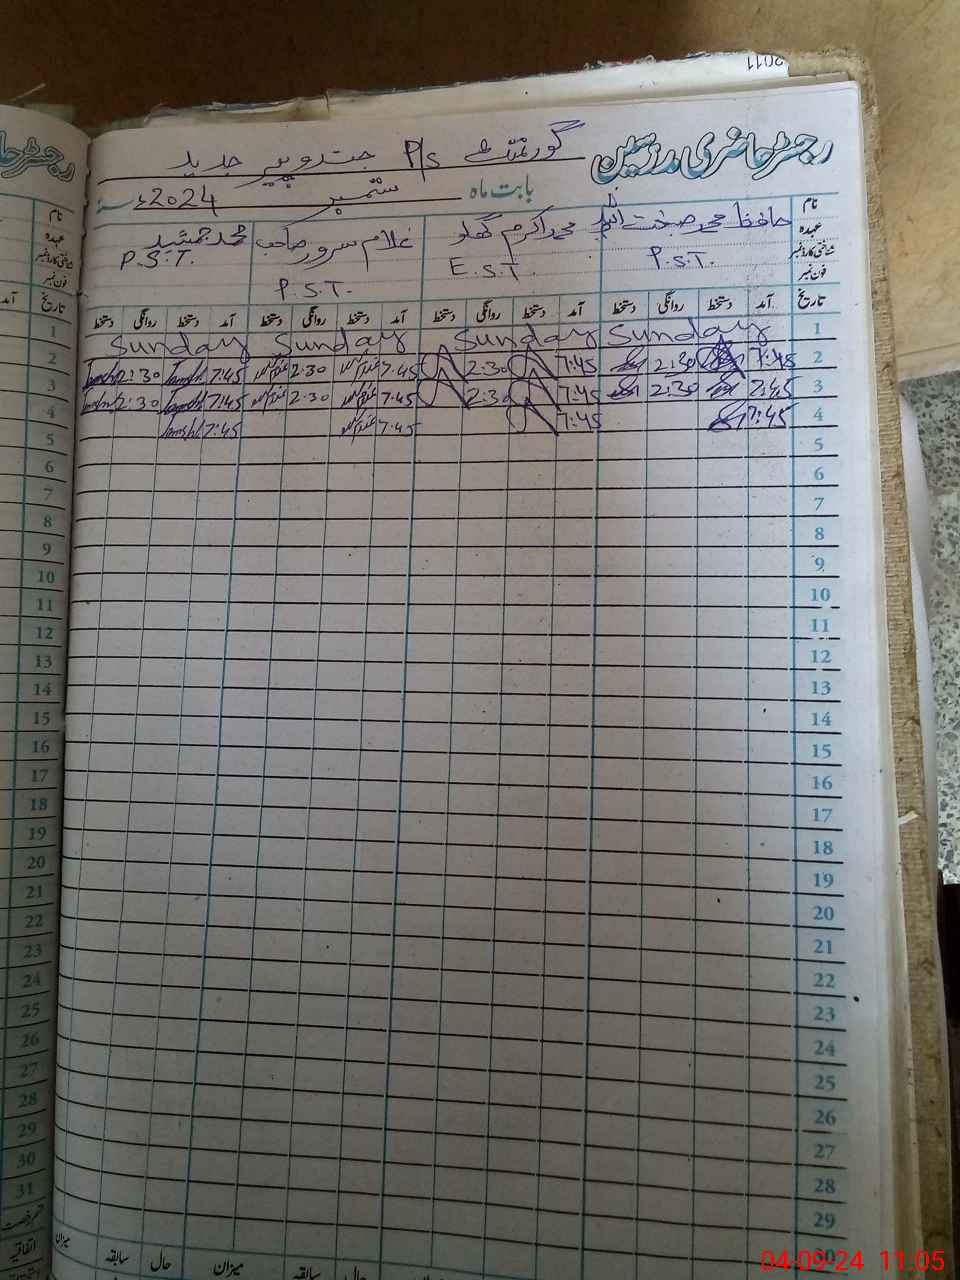 2011
رجسٹر حاضری مدرسین گورنمنٹ P/s جدید
بابت ماہ ستمبر سنہ 2024ء
نام حافظ محمد محمد اکرم غلام سرور صاحب محمد جمشید
عہدہ P.S.T. E.S.T. P.S.T. P.S.T.
شناختی کارڈ نمبر
فون نمبر
تاریخ آمد دستخط روانگی دستخط آمد دستخط روانگی دستخط آمد دستخط روانگی دستخط آمد دستخط روانگی دستخط
1 Sunday Sunday Sunday Sunday
2 7:45 2:30 7:45 2:30 7:45 2:30 7:45 2:30
3 7:45 2:30 7:45 2:30 7:45 2:30 7:45 2:30
4 7:45 7:45 7:45 7:45
5
6
7
8
9
10
11
12
13
14
15
16
17
18
19
20
21
22
23
24
25
26
27
28
29
30
میزان حال سابقہ میزان حال سابقہ
رجسٹر حا
نام
عہدہ
شناختی کارڈ نمبر
فون نمبر
تاریخ آمد
1
2
3
4
5
6
7
8
9
10
11
12
13
14
15
16
17
18
19
20
21
22
23
24
25
26
27
28
29
30
31
اتفاقیہ
04-09-24 11:05